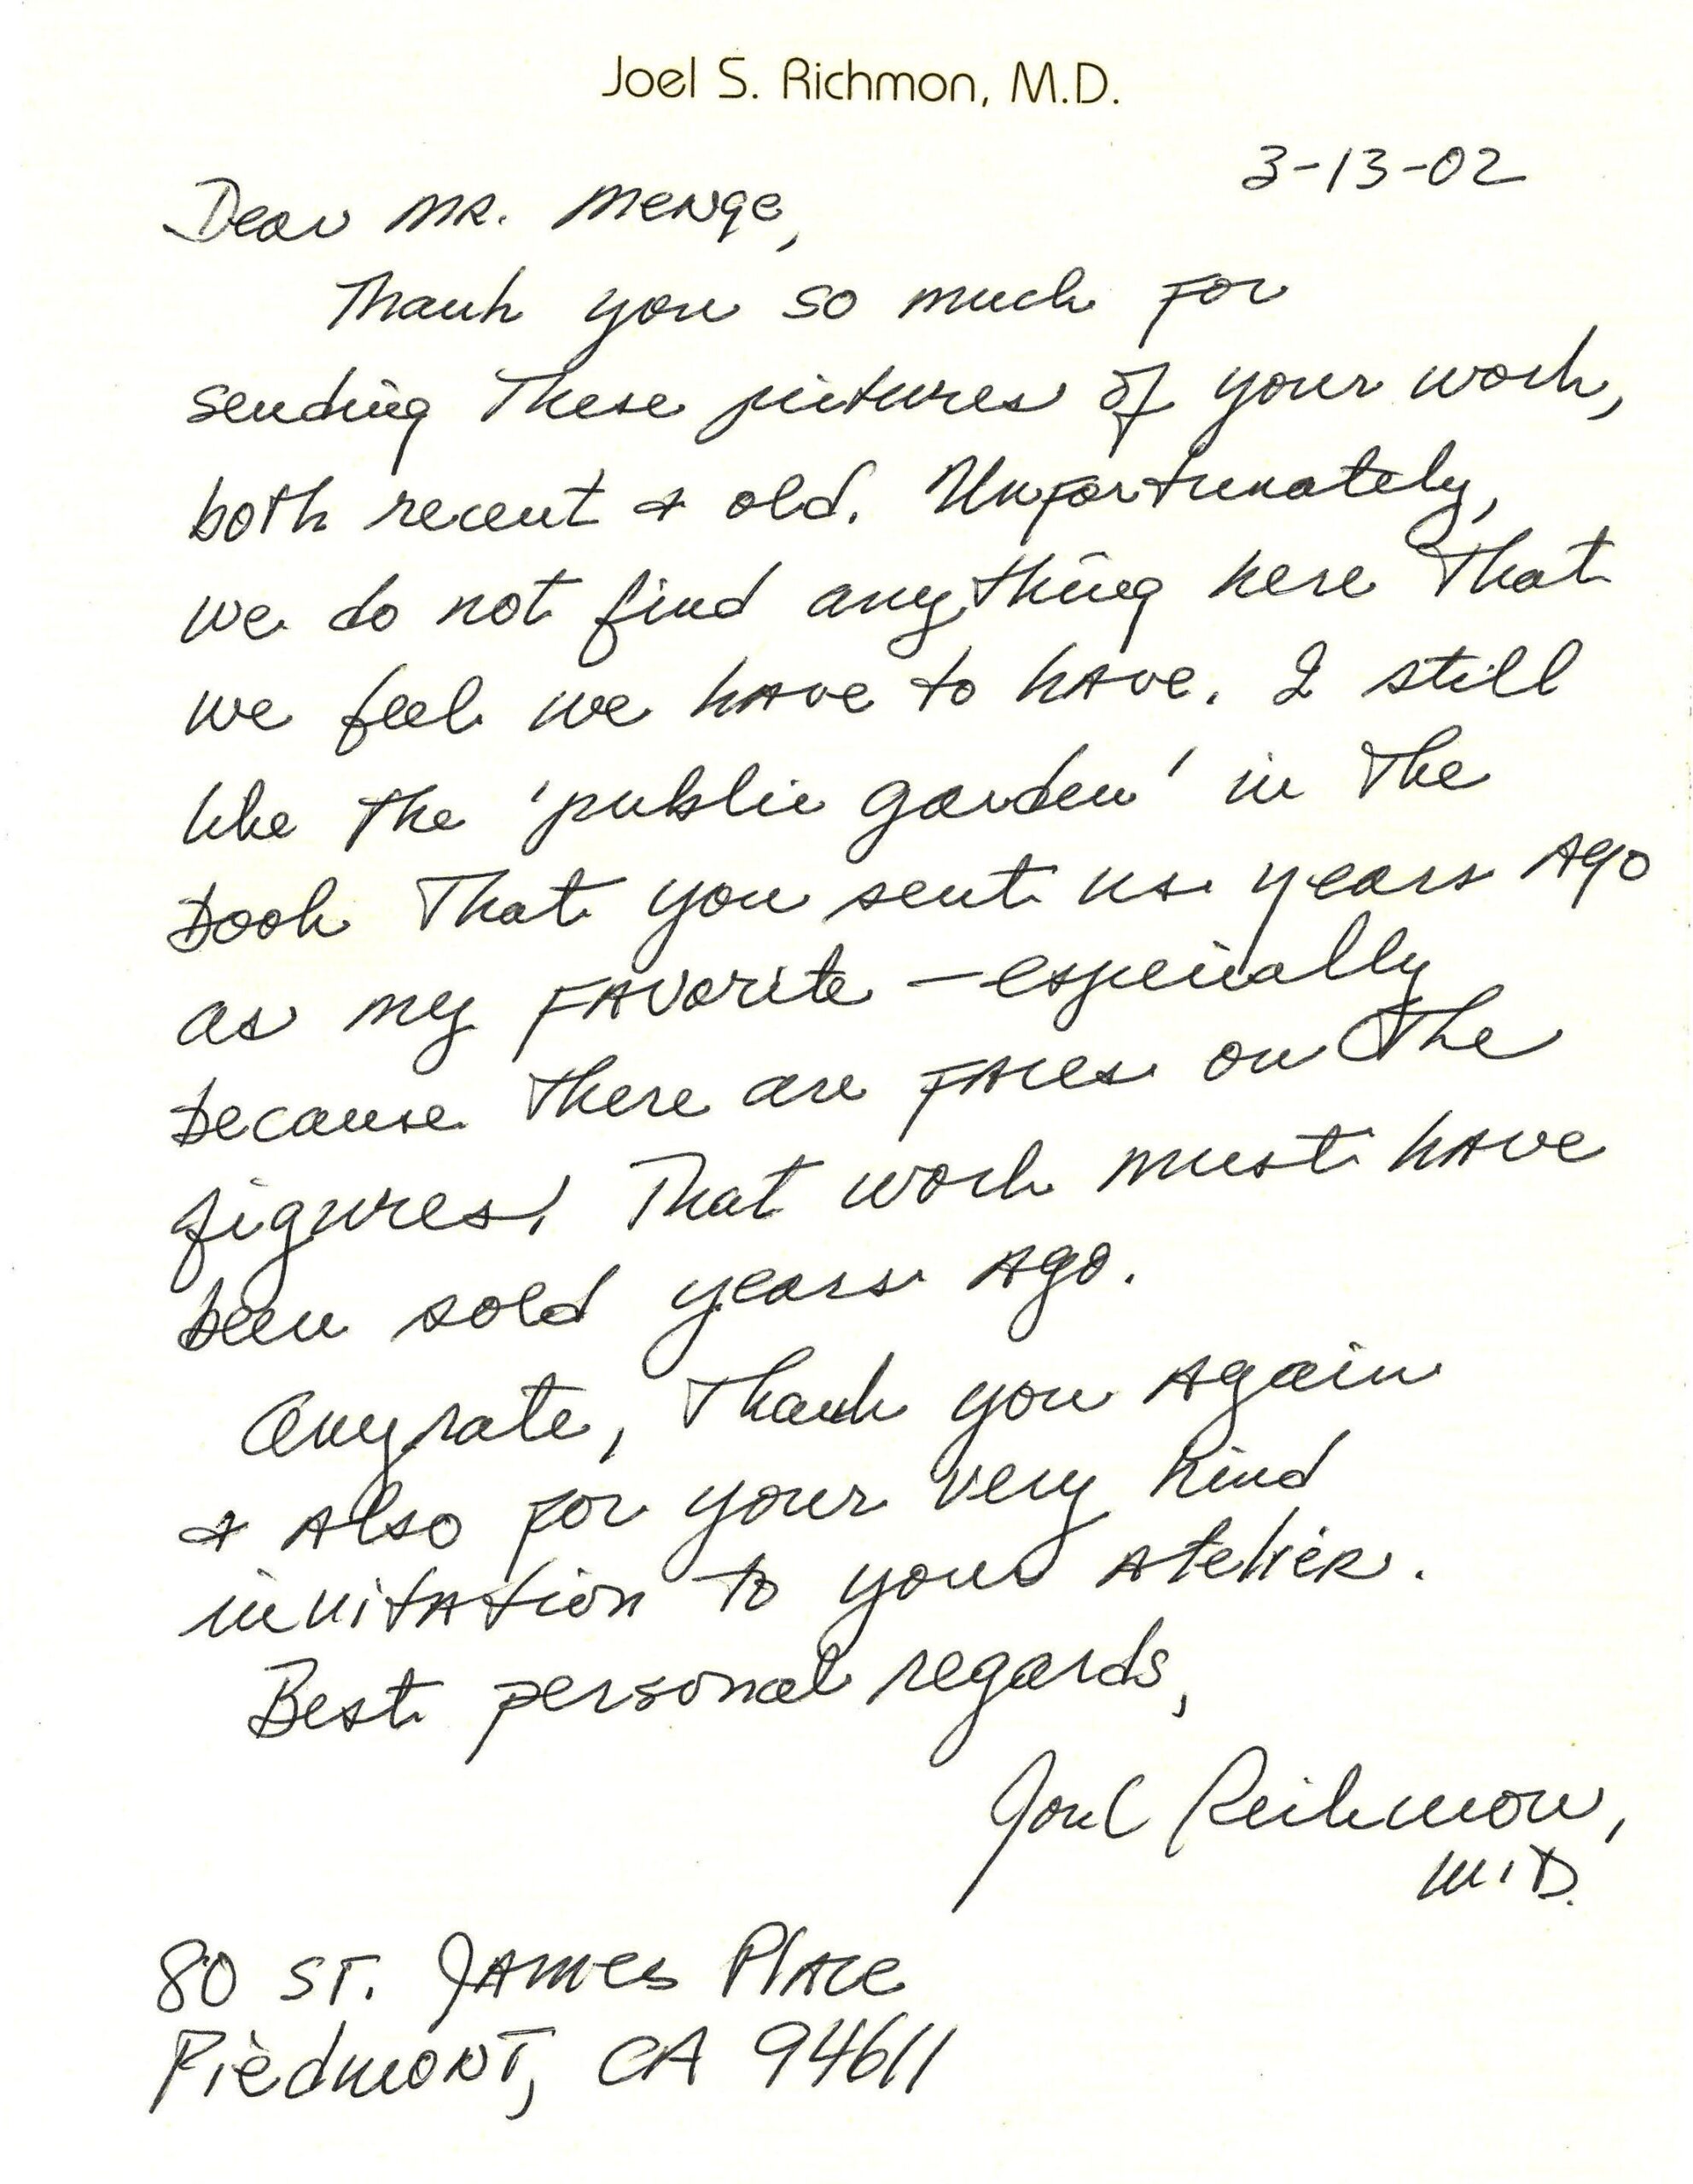 Joel S. Richmon, M.D.
3-13-02
Dear MR. Menge,
Thank you so much for
sending These pictures of your work,
both recent & old. Unfortunately,
we do not find anything here That
we feel we have to have. I still
like the 'public garden' in The
book That you sent us years Ago
as my FAvorite - especially
because there are FAces on The
figures! That work must have
been sold years Ago.
Anyrate, Thank you Again
& Also for your very kind
invitAtion to your Atelier.
Best personal regards,
Joel Richmon,
M.D.
80 ST. JAmes PlAce
PiedmoNT, CA 94611